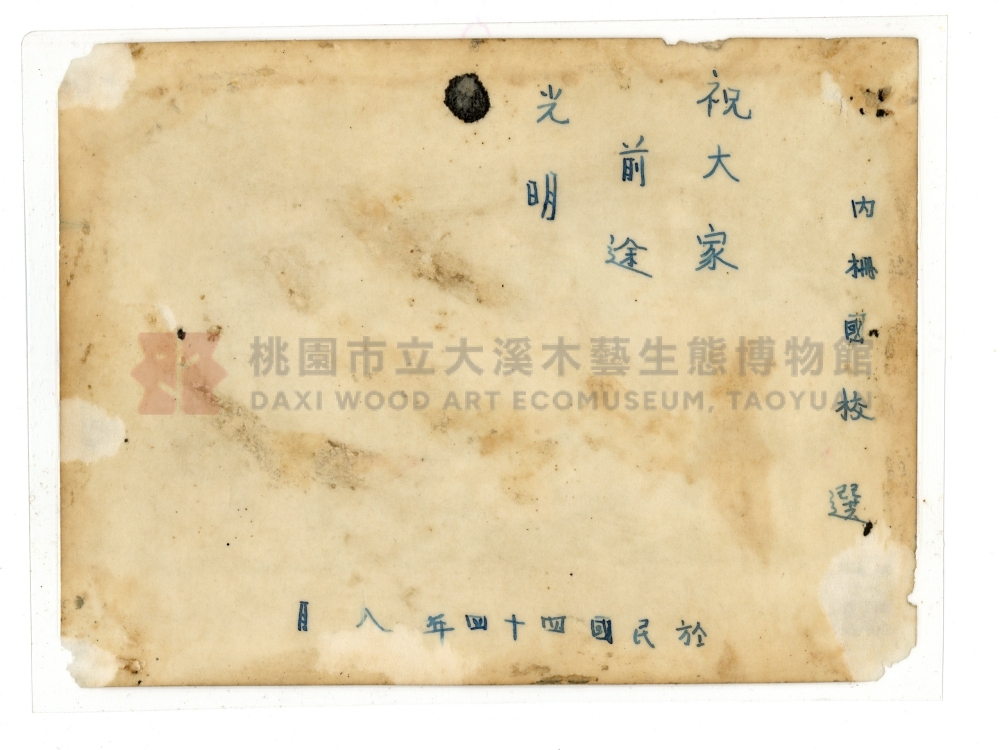 內柵國校 選
祝大家
前途
光明
於民國四十四年八月
桃園市立大溪木藝生態博物館
DAXI WOOD ART ECOMUSEUM, TAOYUAN